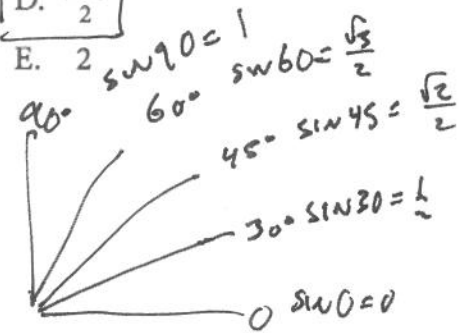 D. 2
E. 2
sin90=1
90°
60° sin60=√3/2
45° sin45=√2/2
30° sin30=1/2
0 sin0=0